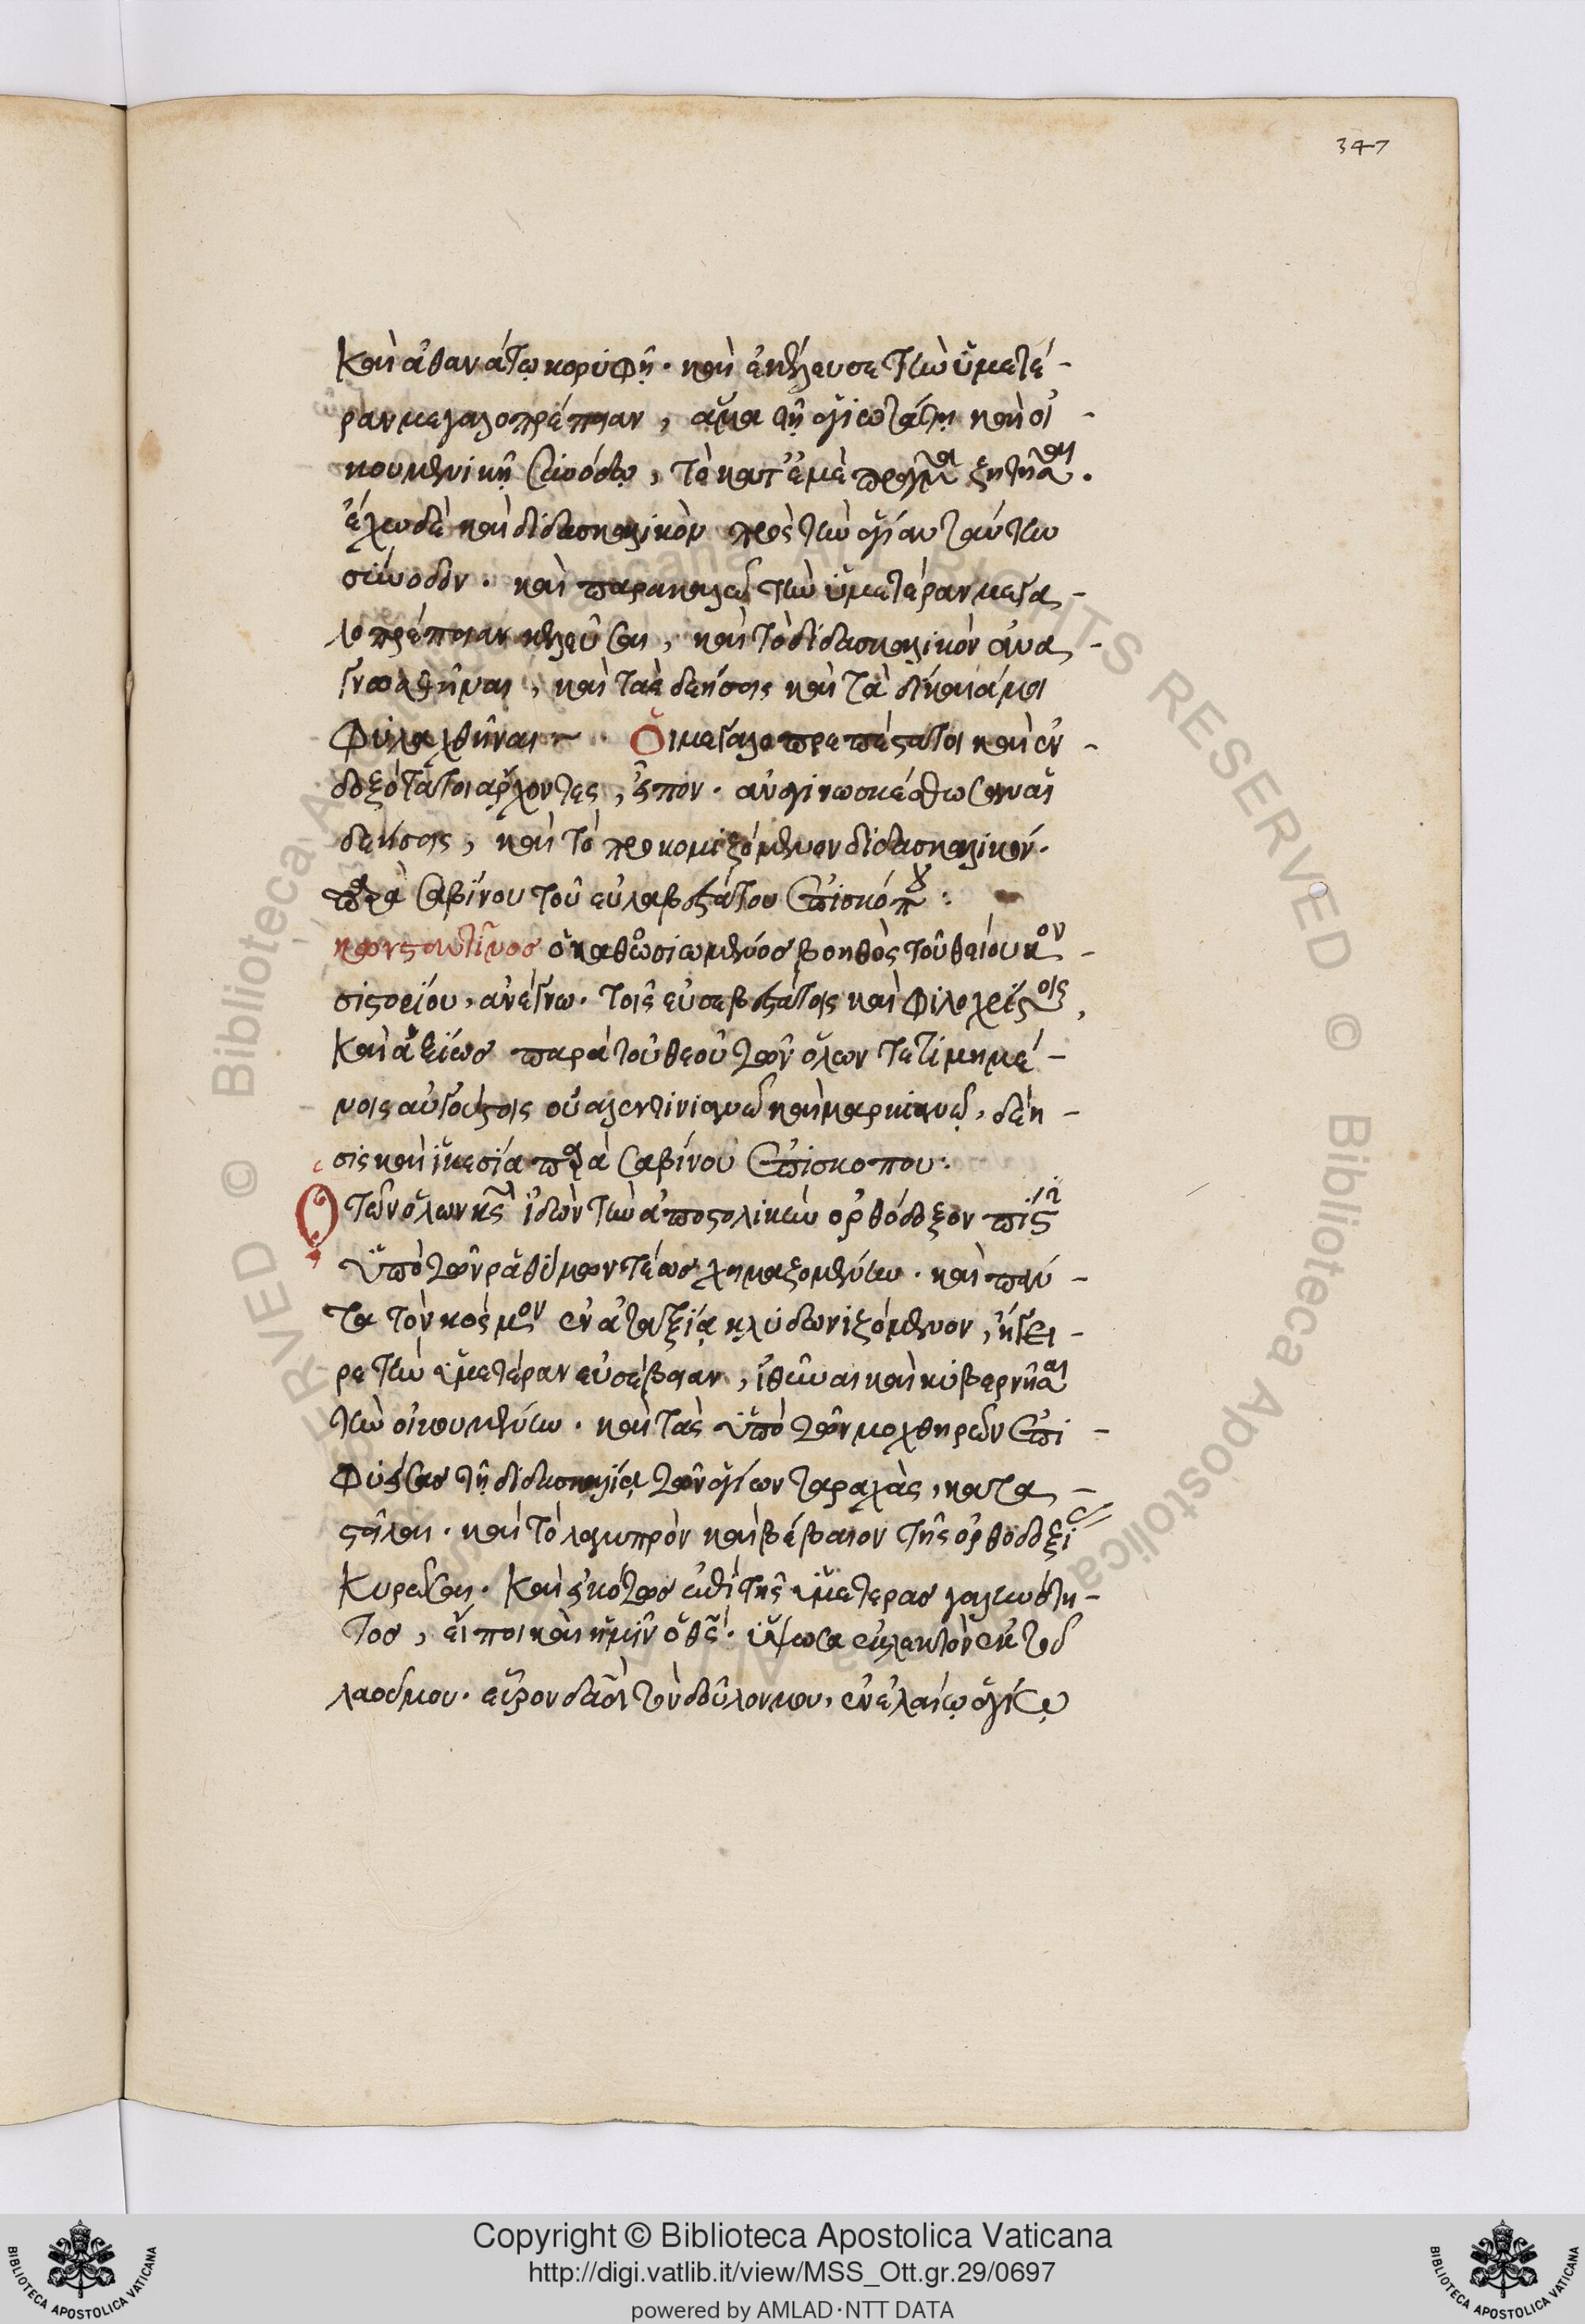 347
καὶ ἀθανάτω κορυφῆ· καὶ ἐκέλευσε τὴν ὑμετέ-
ραν μεγαλοπρέπειαν, ἅμα τῇ ἁγιωτάτῃ καὶ οἰ-
κουμενικῇ συνόδω, τὰ κατ' ἐμὲ πράγματα ζητηθῆναι.
ἔχω δὲ καὶ διδασκαλικὸν πρὸς τὴν ἁγίαν ταύτην
σύνοδον. καὶ παρακαλῶ τὴν ὑμετέραν μεγα-
λοπρέπειαν κελεῦσαι, καὶ τὸ διδασκαλικὸν ἀνα-
γνωσθῆναι, καὶ τὰς δεήσεις καὶ τὰ δίκαιά μοι
φυλαχθῆναι. Οἱ μεγαλοπρεπέστατοι καὶ ἐν-
δοξότατοι ἄρχοντες, εἶπον. ἀναγινωσκέσθωσαν αἱ
δεήσεις, καὶ τὸ προκομιζόμενον διδασκαλικόν.
παρὰ Σαβίνου τοῦ εὐλαβεστάτου ἐπισκόπου:
κωνσταντῖνος ὁ καθωσιωμένος βοηθὸς τοῦ θείου κον-
σιστορίου, ἀνέγνω. τοῖς εὐσεβεστάτοις καὶ φιλοχρίστοις,
καὶ ἀξίως παρὰ τοῦ θεοῦ τῶν ὅλων τετιμημέ-
νοις αὐγούστοις οὐαλεντινιανῶ καὶ μαρκιανῶ, δέη-
σις καὶ ἱκεσία παρὰ Σαβίνου ἐπισκόπου:
Ὁ τῶν ὅλων κς ἰδὼν τὴν ἀποστολικὴν ὀρθόδοξον πίστιν
ὑπὸ τῶν ῥαθύμων τέως χημαζομένην. καὶ πάν-
τα τὸν κόσμον ἐν ἀταξίᾳ κλυδωνιζόμενον, ἤγει-
ρε τὴν ὑμετέραν εὐσέβειαν, ἰθῦναι καὶ κυβερνῆσαι
τὴν οἰκουμένην. καὶ τὰς ὑπὸ τῶν μοχθηρῶν ἐπι-
φύσας τῇ διδασκαλίᾳ τῶν ἁγίων ταραχὰς, κατα-
στεῖλαι. καὶ τὸ λαμπρὸν καὶ βέβαιον τῆς ὀρθοδοξίας
κυρῶσαι. καὶ εἰκότως ἐπὶ τῆς ὑμετέρας γαληνότη-
τος, εἴποι καὶ ἡμῖν ὁ θς. ὕψωσα ἐκλεκτὸν ἐκ τοῦ
λαοῦ μου. εὗρον δαδ τὸν δοῦλον μου, ἐν ἐλαίω ἁγίω
Copyright © Biblioteca Apostolica Vaticana
http://digi.vatlib.it/view/MSS_Ott.gr.29/0697
powered by AMLAD·NTT DATA